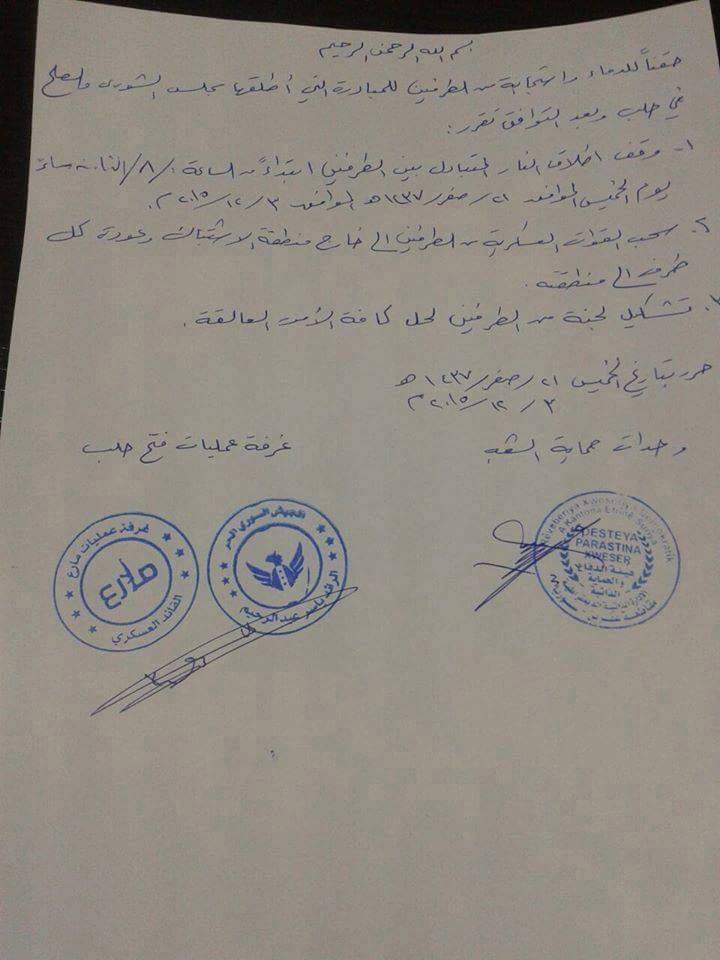 بسم الله الرحمن الرحيم
حقناً للدماء واستجابة من الطرفين للمبادرة التي أطلقها مجلس الشورى والصلح
في حلب وبعد التوافق تقرر :
١- وقف اطلاق النار المتبادل بين الطرفين ابتداءً من الساعة /٨/ الثامنة مساءً
يوم الخميس الموافق ٢١/صفر/١٤٣٧ هـ الموافق ٣/١٢/٢٠١٥ م.
٢. سحب القوات العسكرية من الطرفين الى خارج منطقة الاشتباك وعودة كل
طرف الى منطقته .
٣. تشكيل لجنة من الطرفين لحل كافة الأمور العالقة .
حرر بتاريخ الخميس ٢١/صفر/١٤٣٧ هـ
٣/١٢/٢٠١٥ م
وحدات حماية الشعب
غرفة عمليات فتح حلب
DESTEYA
PARASTINA
XWESER
هيئة الدفاع
والحماية
الذاتية
الجيش السوري الحر
الرائد ياسر عبد الرحيم
غرفة عمليات مارع
مارع
القائد العسكري